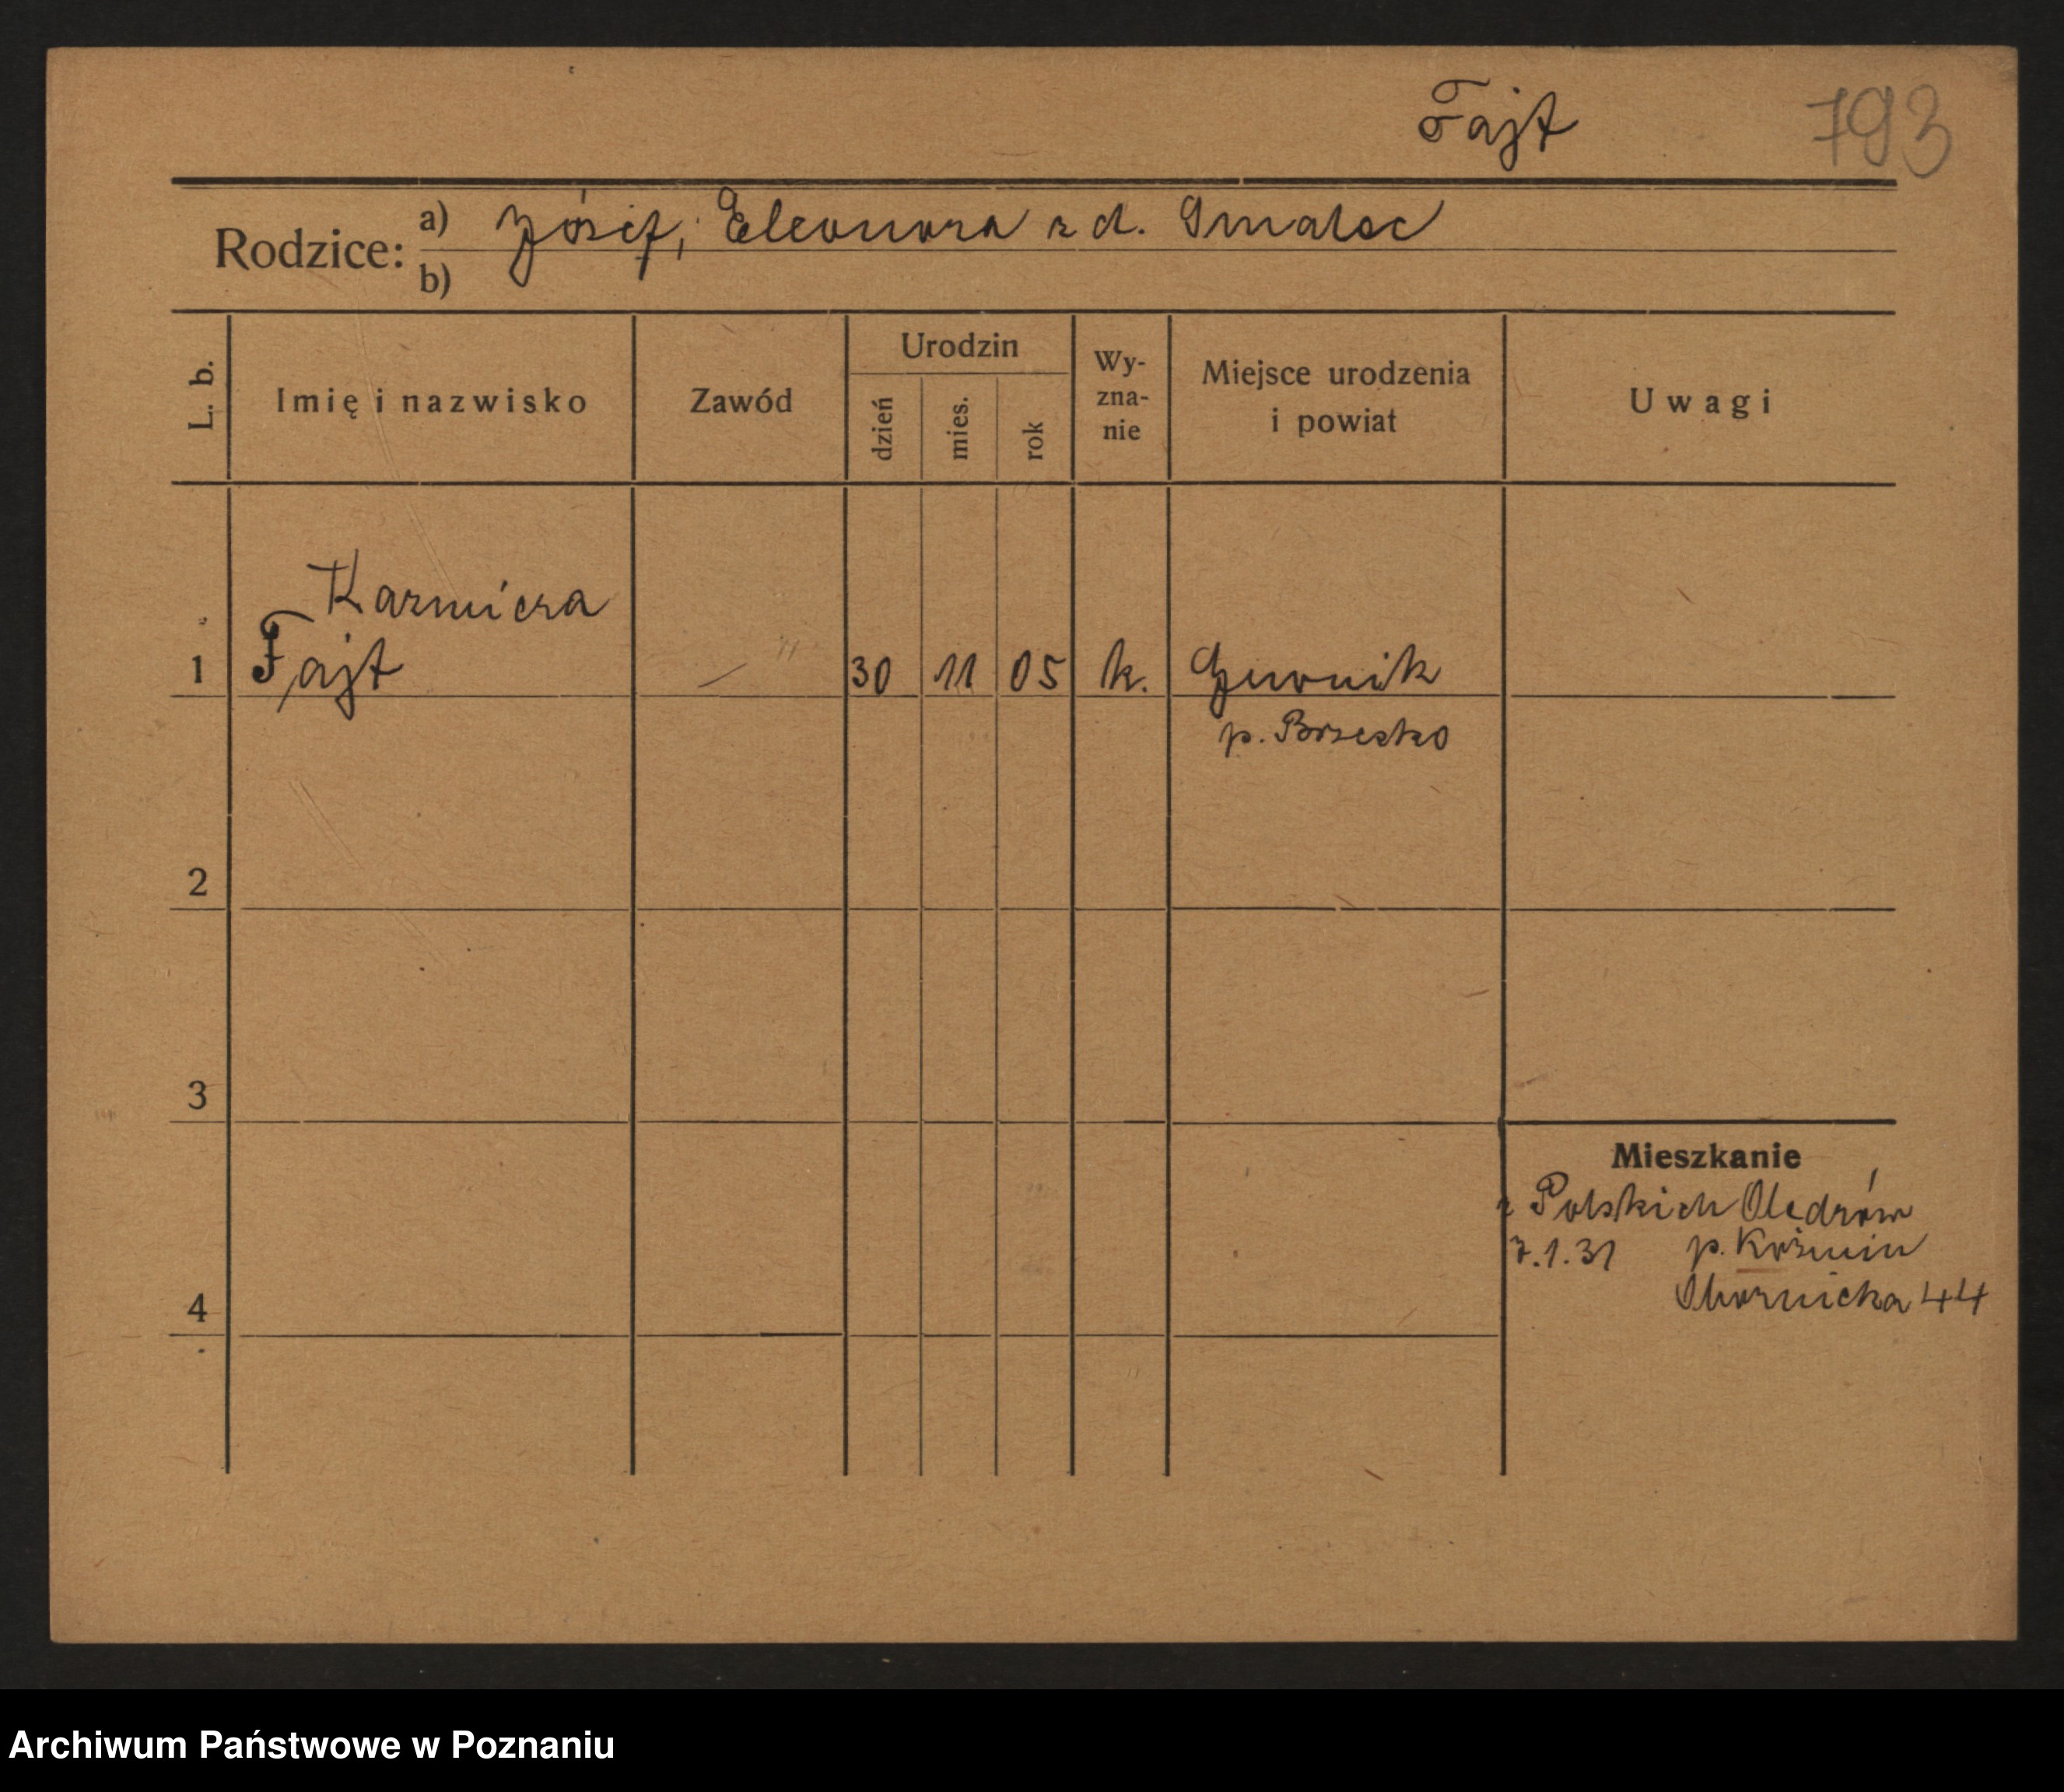 Fajt 793
Rodzice: a) Józef, Eleonora z d. Smalec
b)
L. b. Imię i nazwisko Zawód Urodzin dzień mies. rok Wy-zna-nie Miejsce urodzenia i powiat Uwagi
Kazmiera
1 Fajt — 30 11 05 k. Gwonik
p. Brzesko
2
3
Mieszkanie
z Polskich Olędrów
7.1.31 p. Koźmin
4 Obornicka 44
Archiwum Państwowe w Poznaniu